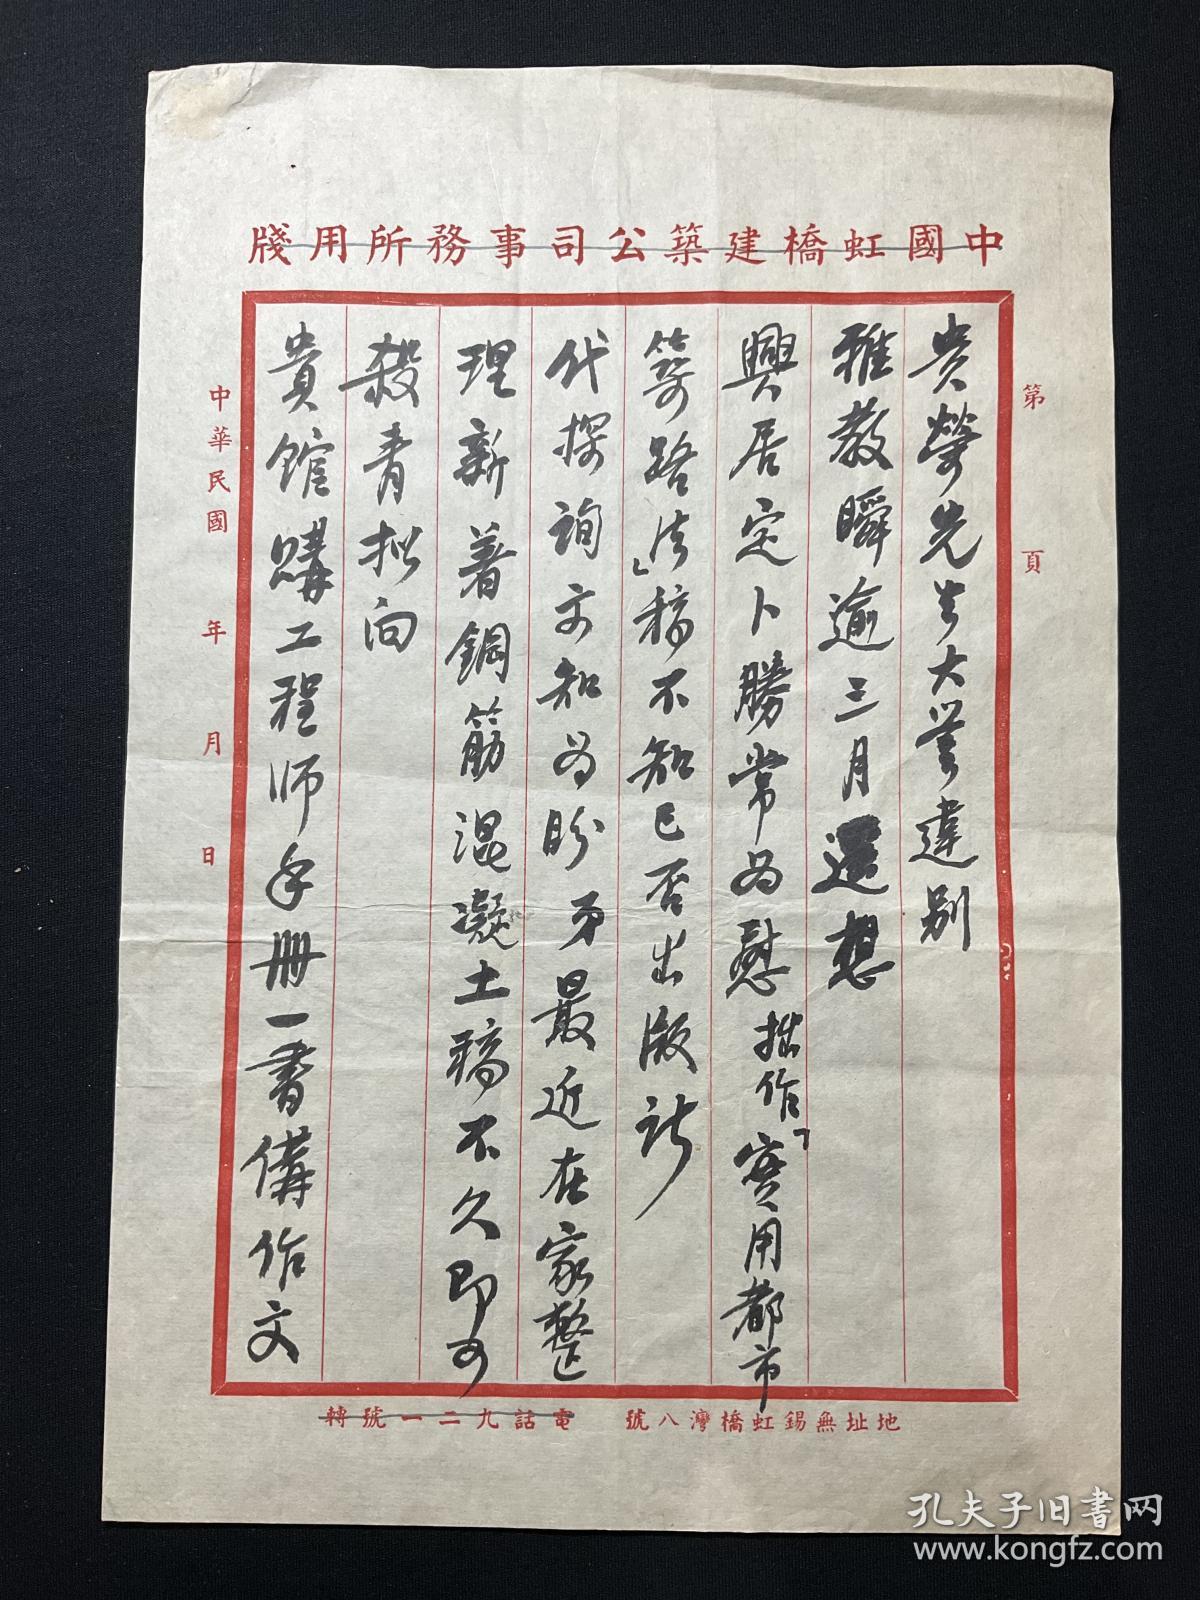 中國虹橋建築公司事務所用牋
第 頁
貴榮先生大鑒違别
雅教瞬逾三月遥想
興居定卜勝常為慰拙作「實用都市
築路法」稿不知已否出版祈
代探詢示知為盼弟最近在家整
理新著鋼筋混凝土稿不久即可
殺青拟向
貴館購工程师手册一書備作文
中華民國 年 月 日
地址無錫虹橋灣八號 電話九二一號轉
孔夫子旧书网
www.kongfz.com